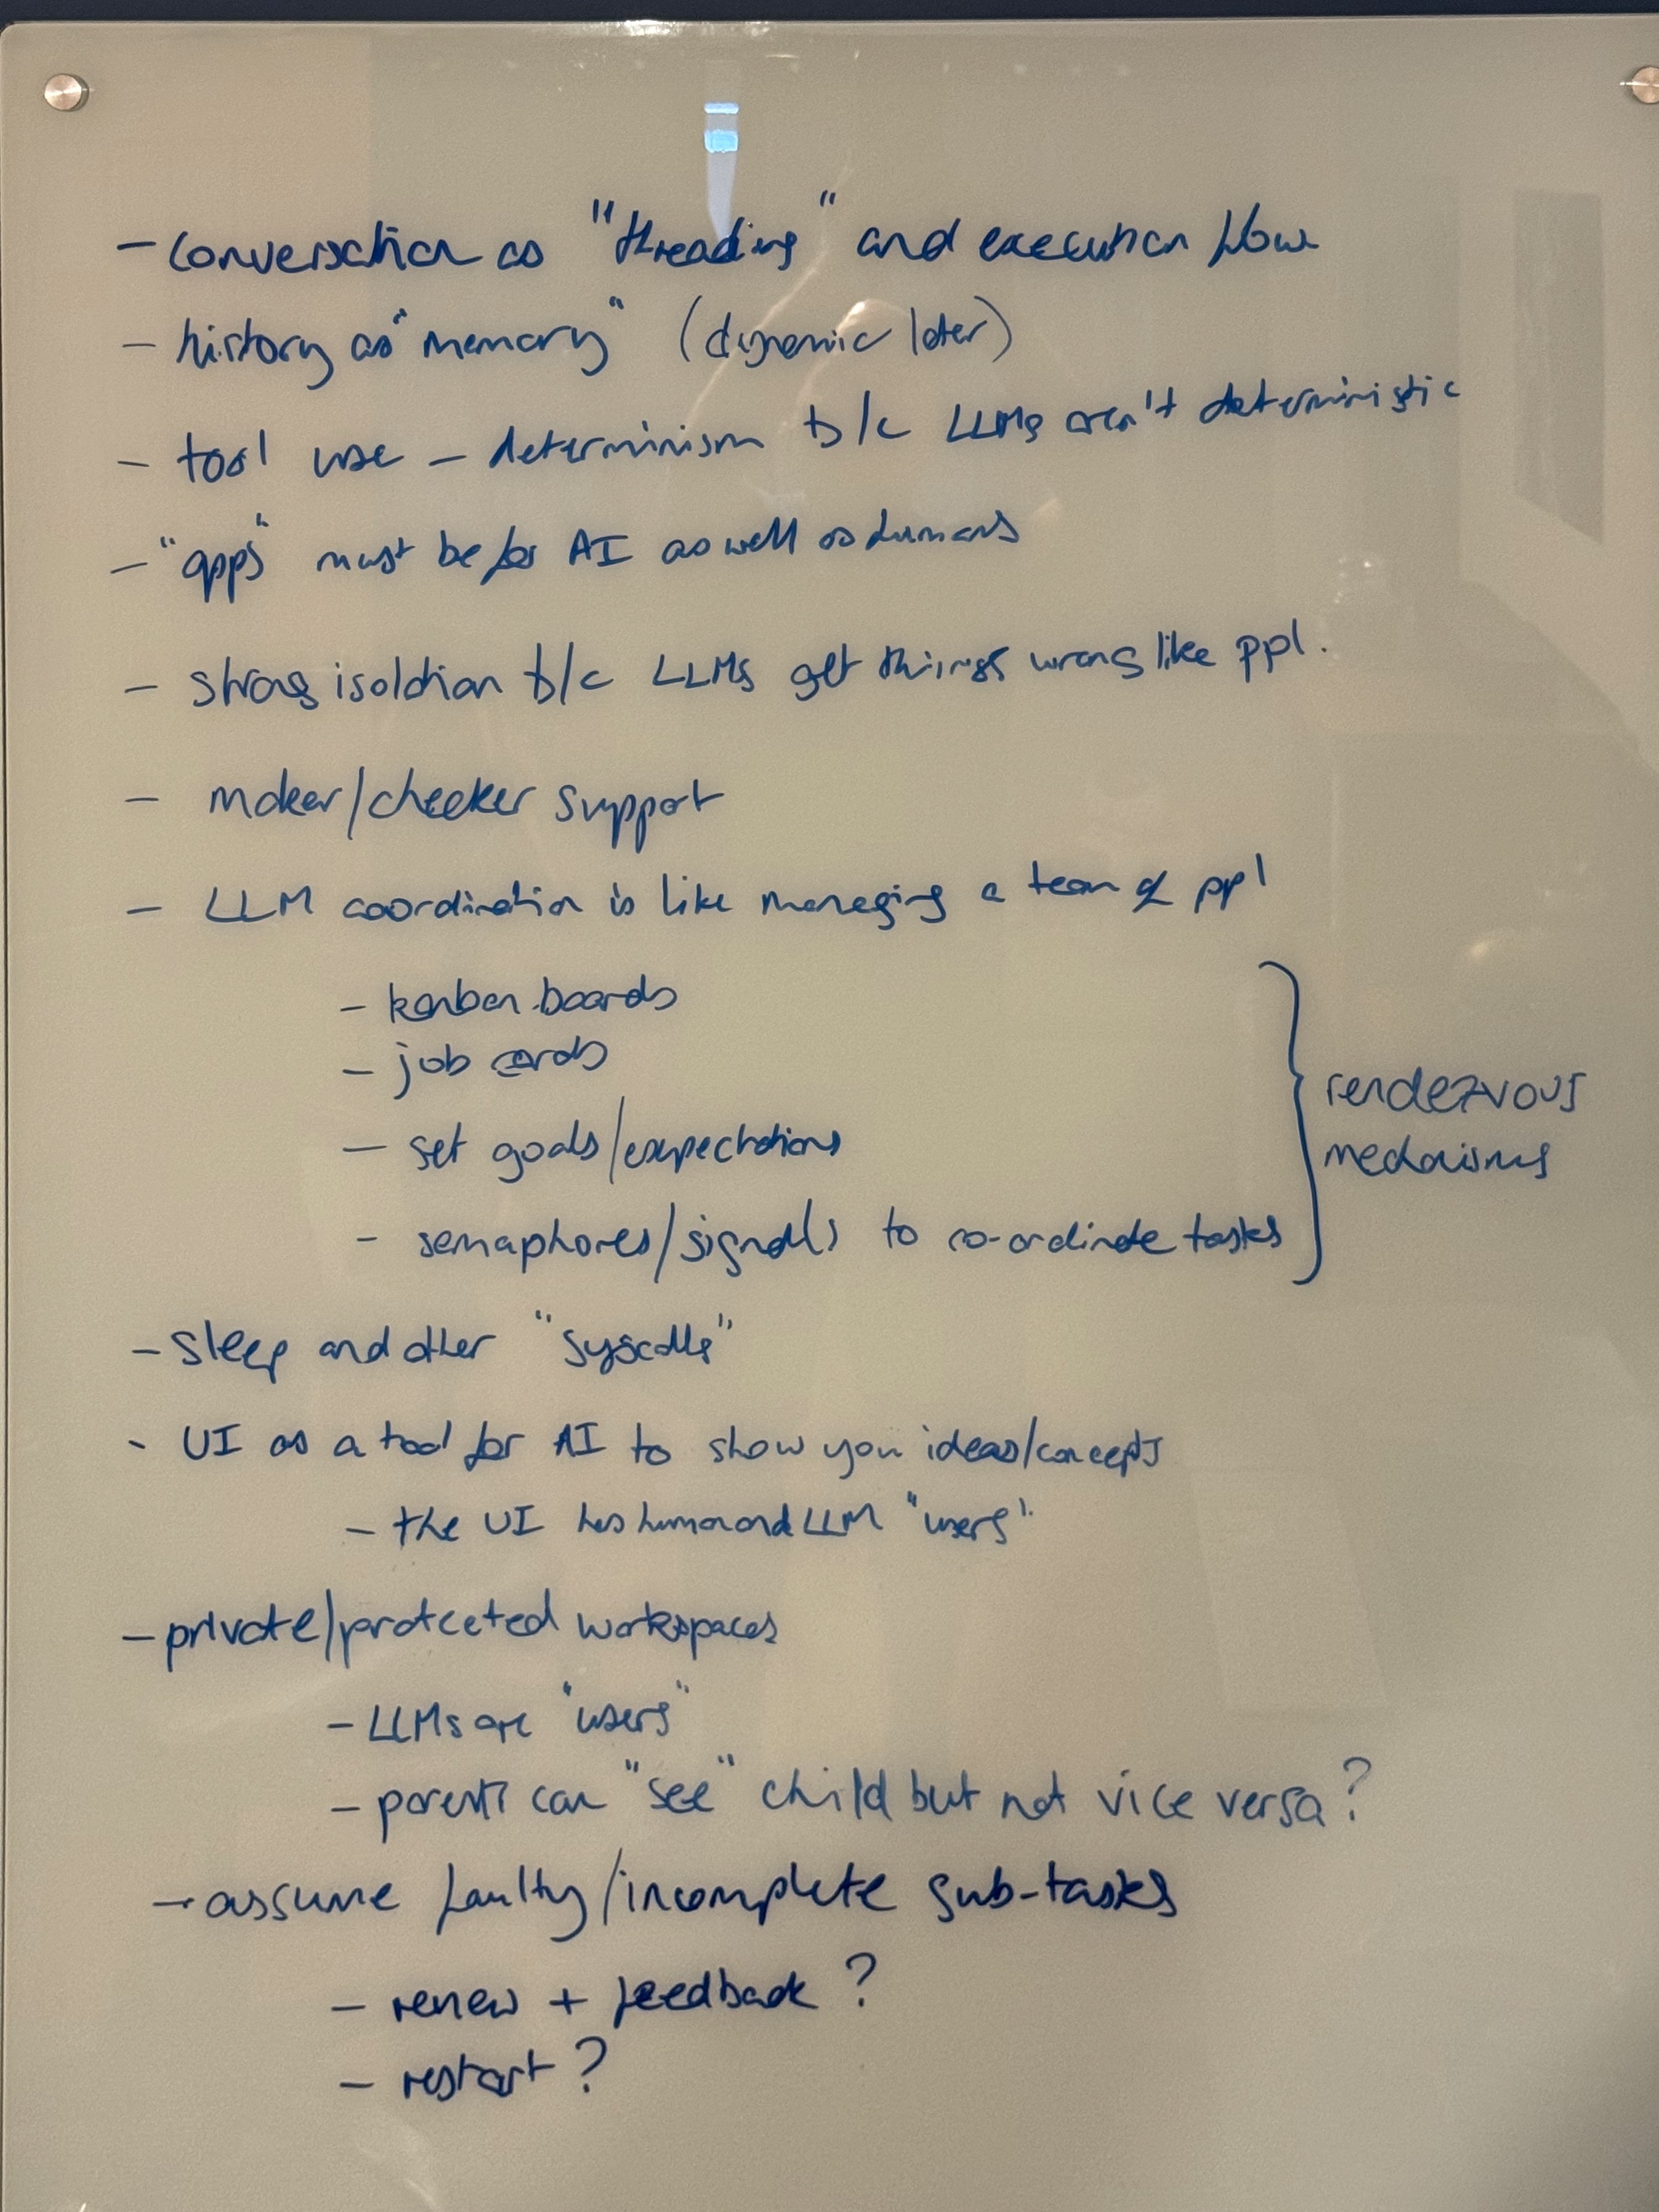 - conversation as "threading" and execution flow
- history as "memory" (dynamic later)
- tool use - determinism b/c LLMs aren't deterministic
- "apps" must be for AI as well as humans
- strong isolation b/c LLMs get things wrong like ppl.
- maker/checker support
- LLM coordination is like managing a team of ppl
- kanban boards
- job cards
- set goals/expectations
- semaphores/signals to co-ordinate tasks
rendezvous
mechanisms
- sleep and other "syscalls"
- UI as a tool for AI to show you ideas/concepts
- the UI has human and LLM "users"
- private/protected workspaces
- LLMs are "users"
- parent can "see" child but not vice versa?
- assume faulty/incomplete sub-tasks
- + feedback?
- restart?